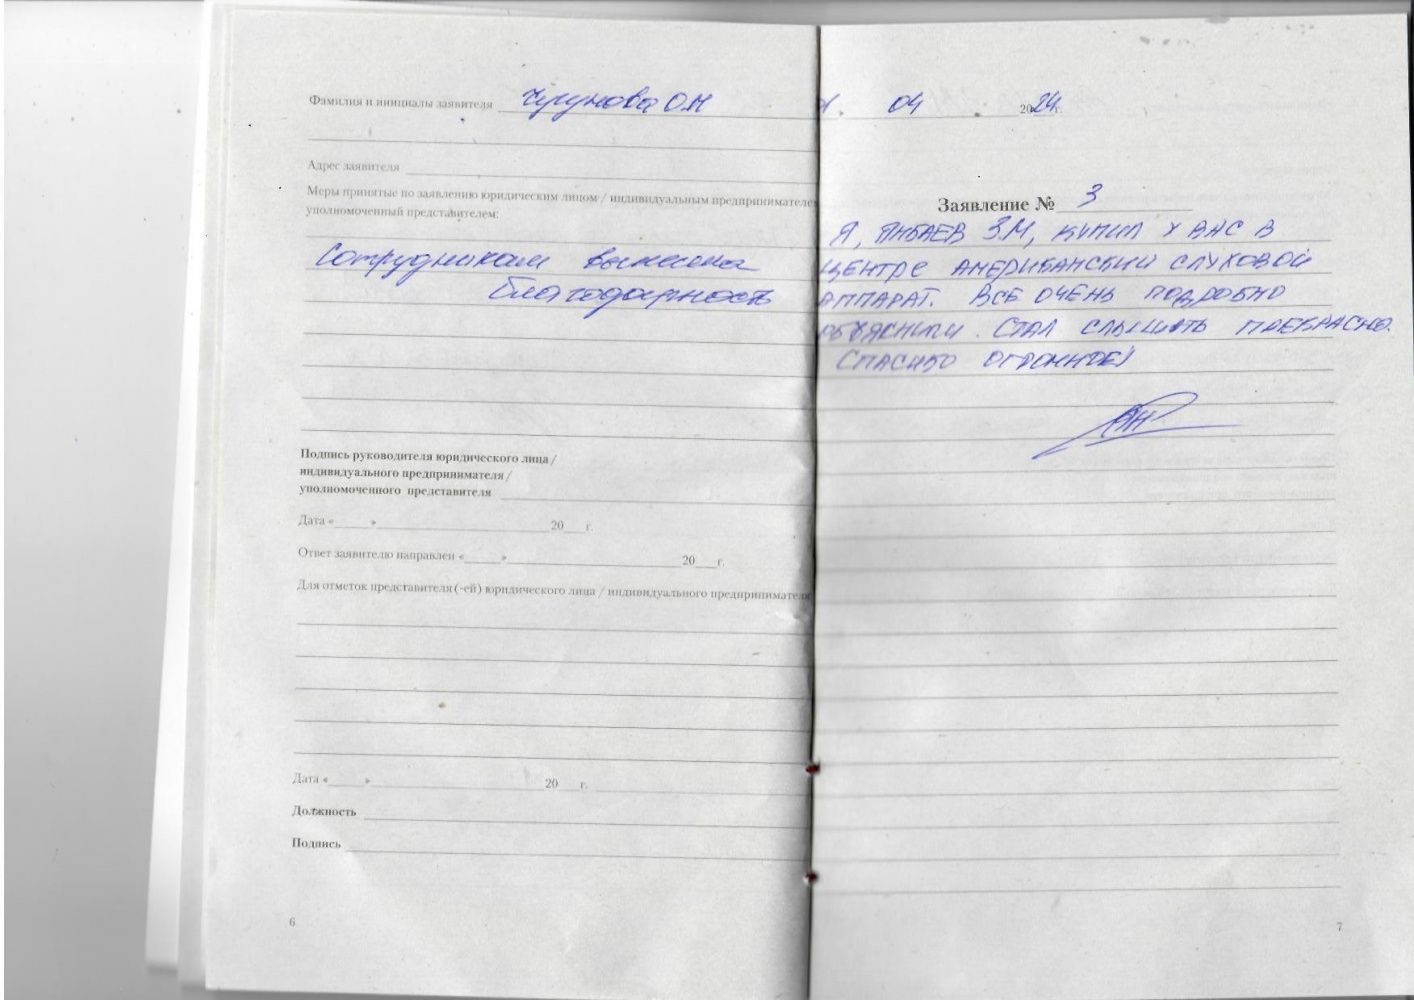 Фамилия и инициалы заявителя Чугунова О.Н
Адрес заявителя
Меры принятые по заявлению юридическим лицом / индивидуальным предпринимателем
уполномоченный представителем:
Сотрудникам вынесена
благодарность
Подпись руководителя юридического лица /
индивидуального предпринимателя /
уполномоченного представителя
Дата «____»____ 20___г.
Ответ заявителю направлен «____»____ 20___г.
Для отметок представителя (-ей) юридического лица / индивидуального предпринимателя
Дата «____»____ 20___г.
Должность
Подпись
6
04 2024г.
Заявление № 3
Я, ЯНБАЕВ З.М, КУПИЛ У ВАС В
ЦЕНТРЕ АМЕРИКАНСКИЙ СЛУХОВОЙ
АППАРАТ. ВСЕ ОЧЕНЬ ПОДРОБНО
ОБЪЯСНИЛИ. СТАЛ СЛЫШАТЬ ПРЕКРАСНО.
СПАСИБО ОГРОМНОЕ!
7